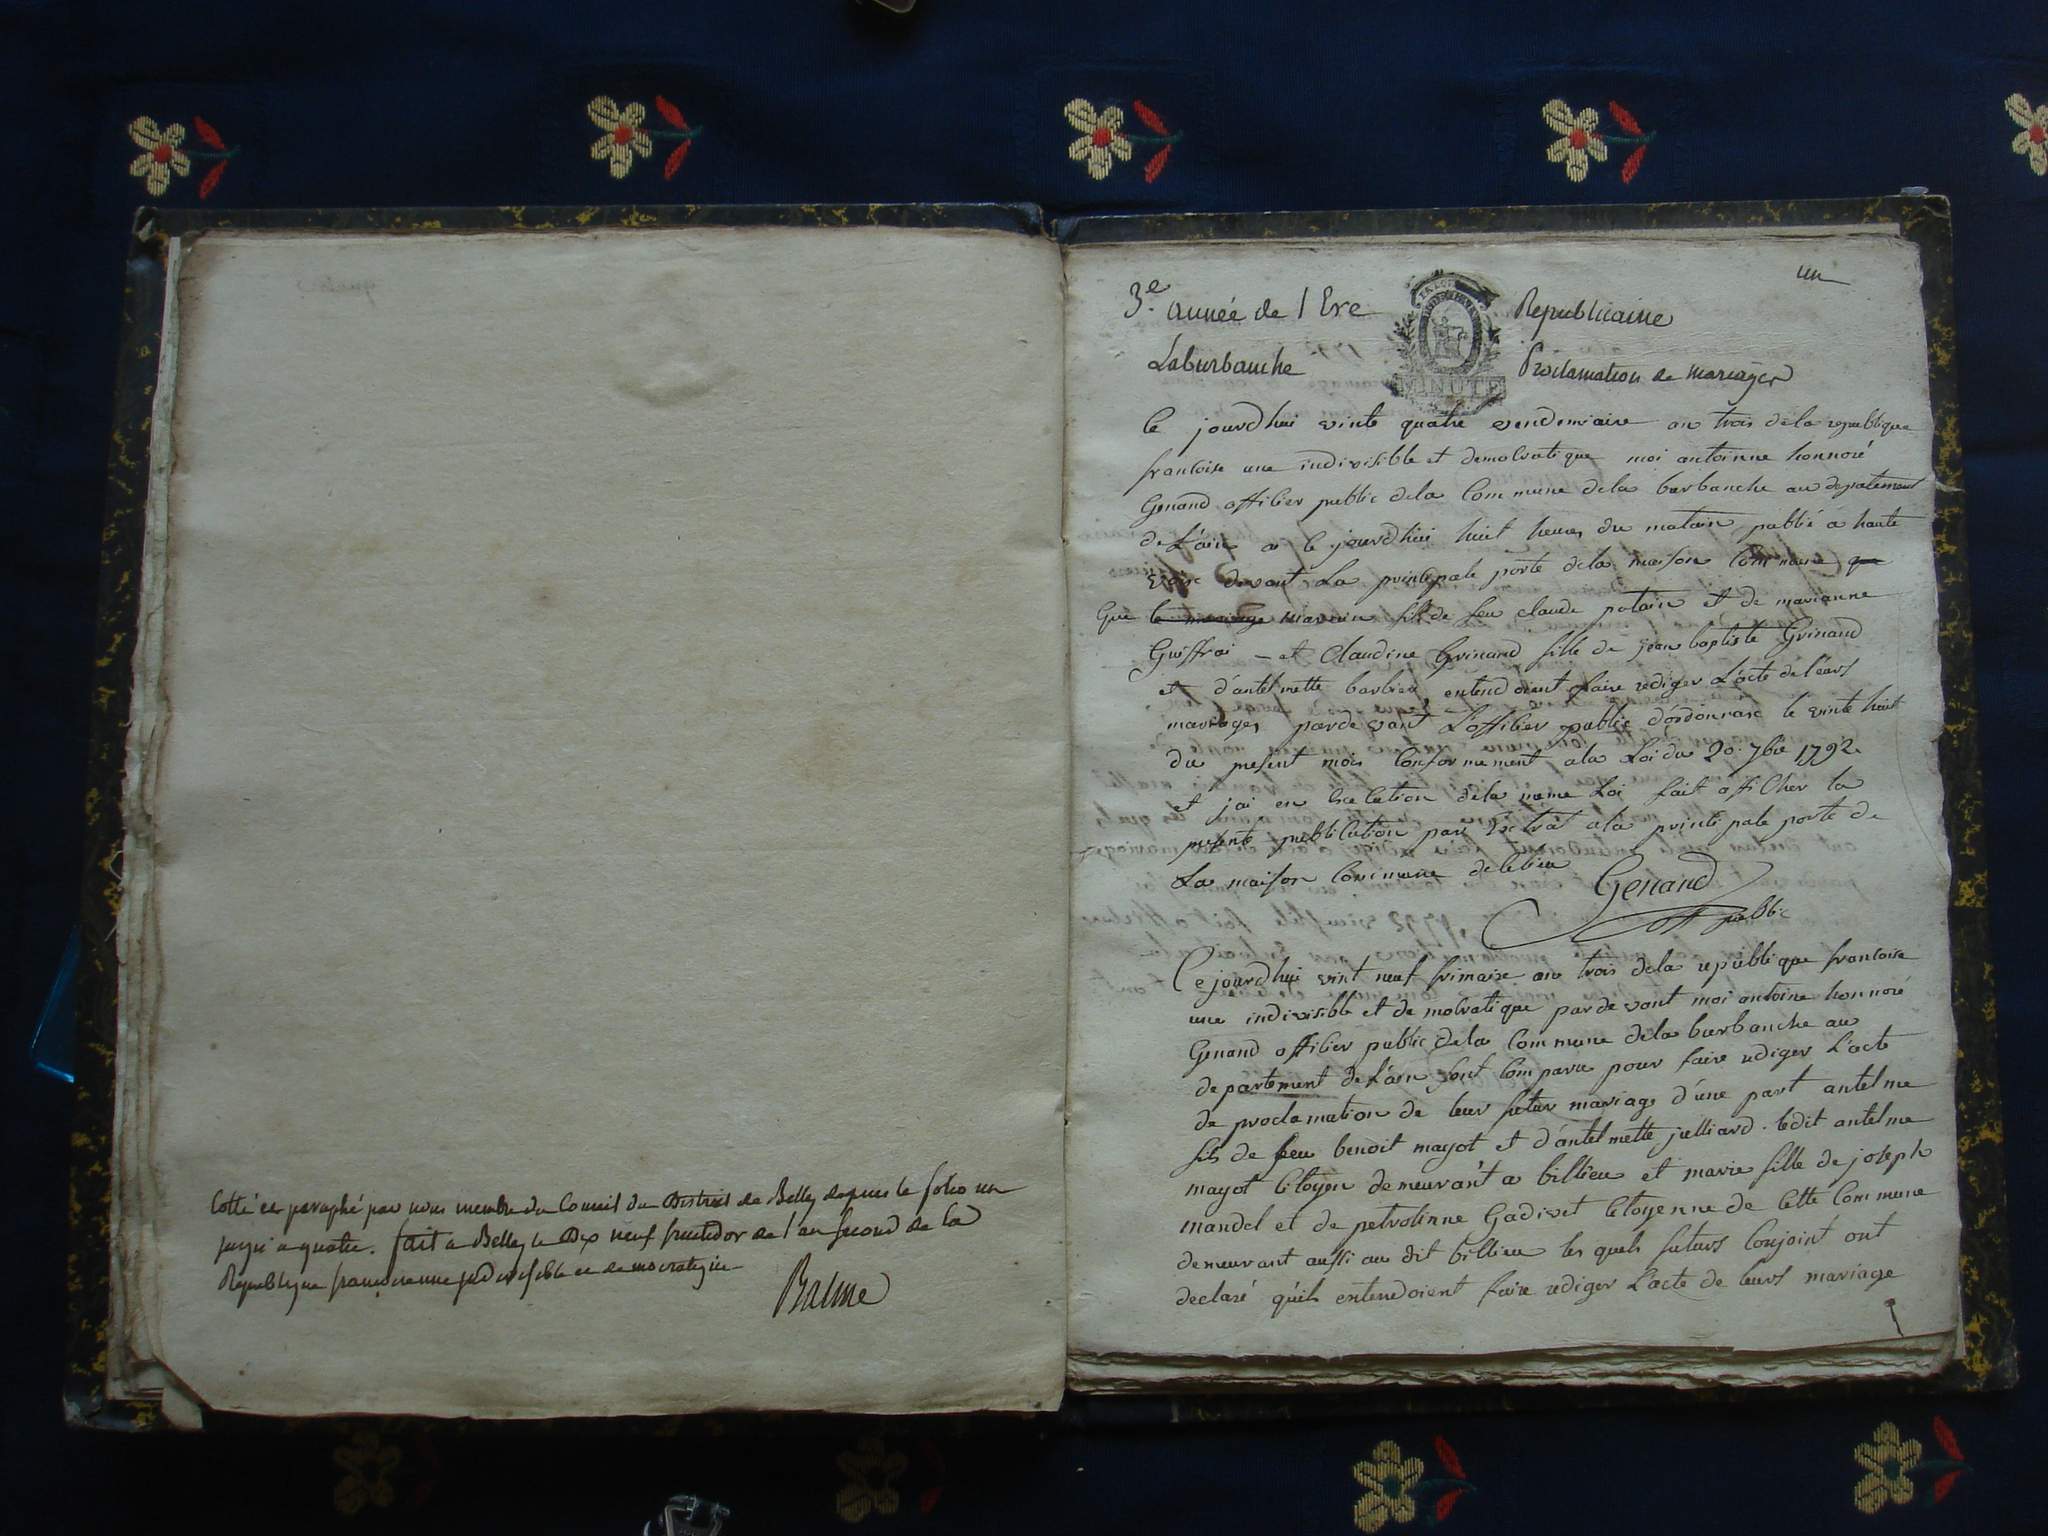 Cotté et paraphé par nous membre du Conseil du District de Belley depuis le folio un
jusqu'a quatre. fait a Belley le Dix neuf fructidor de l'an second de la
Republique francaise une indivisible et democratique
Balme
un
3.e année de l Ere Republicaine
Laburbanche Proclamation de mariages
MINUTE
Ce jourdhui vinte quatre vendemiaire an trois dela republique
francoise une indivisible et democratique moi antoinne honnoré
Genand officier public dela Commune dela burbanche au departement
de L'ain a le jourdhui huit heures du matain publié a haute
voix devant La principale porte dela maison Commune que
que le mariage fils de feu claude potain et de marianne
Guiffrai - et Claudine Grinand fille de jean baptiste Grinand
et d'antelmette barbier entendoient faire rediger L'acte de leurs
mariages pardevant L'officier public le vinte huit
du present mois Conformement ala Loi du 20. 7bre 1792
et jai en execution dela meme Loi fait afficher la
presente publication par Extrat ala principale porte de
La maison Commune de ce lieu Genand
off public
Cejourdhui vint neuf frimaire an trois dela republique francoise
une indivisible et democratique pardevant moi antoine honnoré
Genand officier public dela Commune dela burbanche au
departement de L'ain sont Comparu pour faire rediger L'acte
de proclamation de leur futur mariage d'une part antelme
fils de feu benoit mayot et d'antelmette julliard. ledit antelme
mayot Citoyen demeurant a billieu et marie fille de joseph
mandel et de petrolinne Gadivet Citoyenne de Cette Commune
demeurant aussi au dit billieu les quels futurs Conjoint ont
declaré qu'ils entendoient faire rediger L'acte de leurs mariage